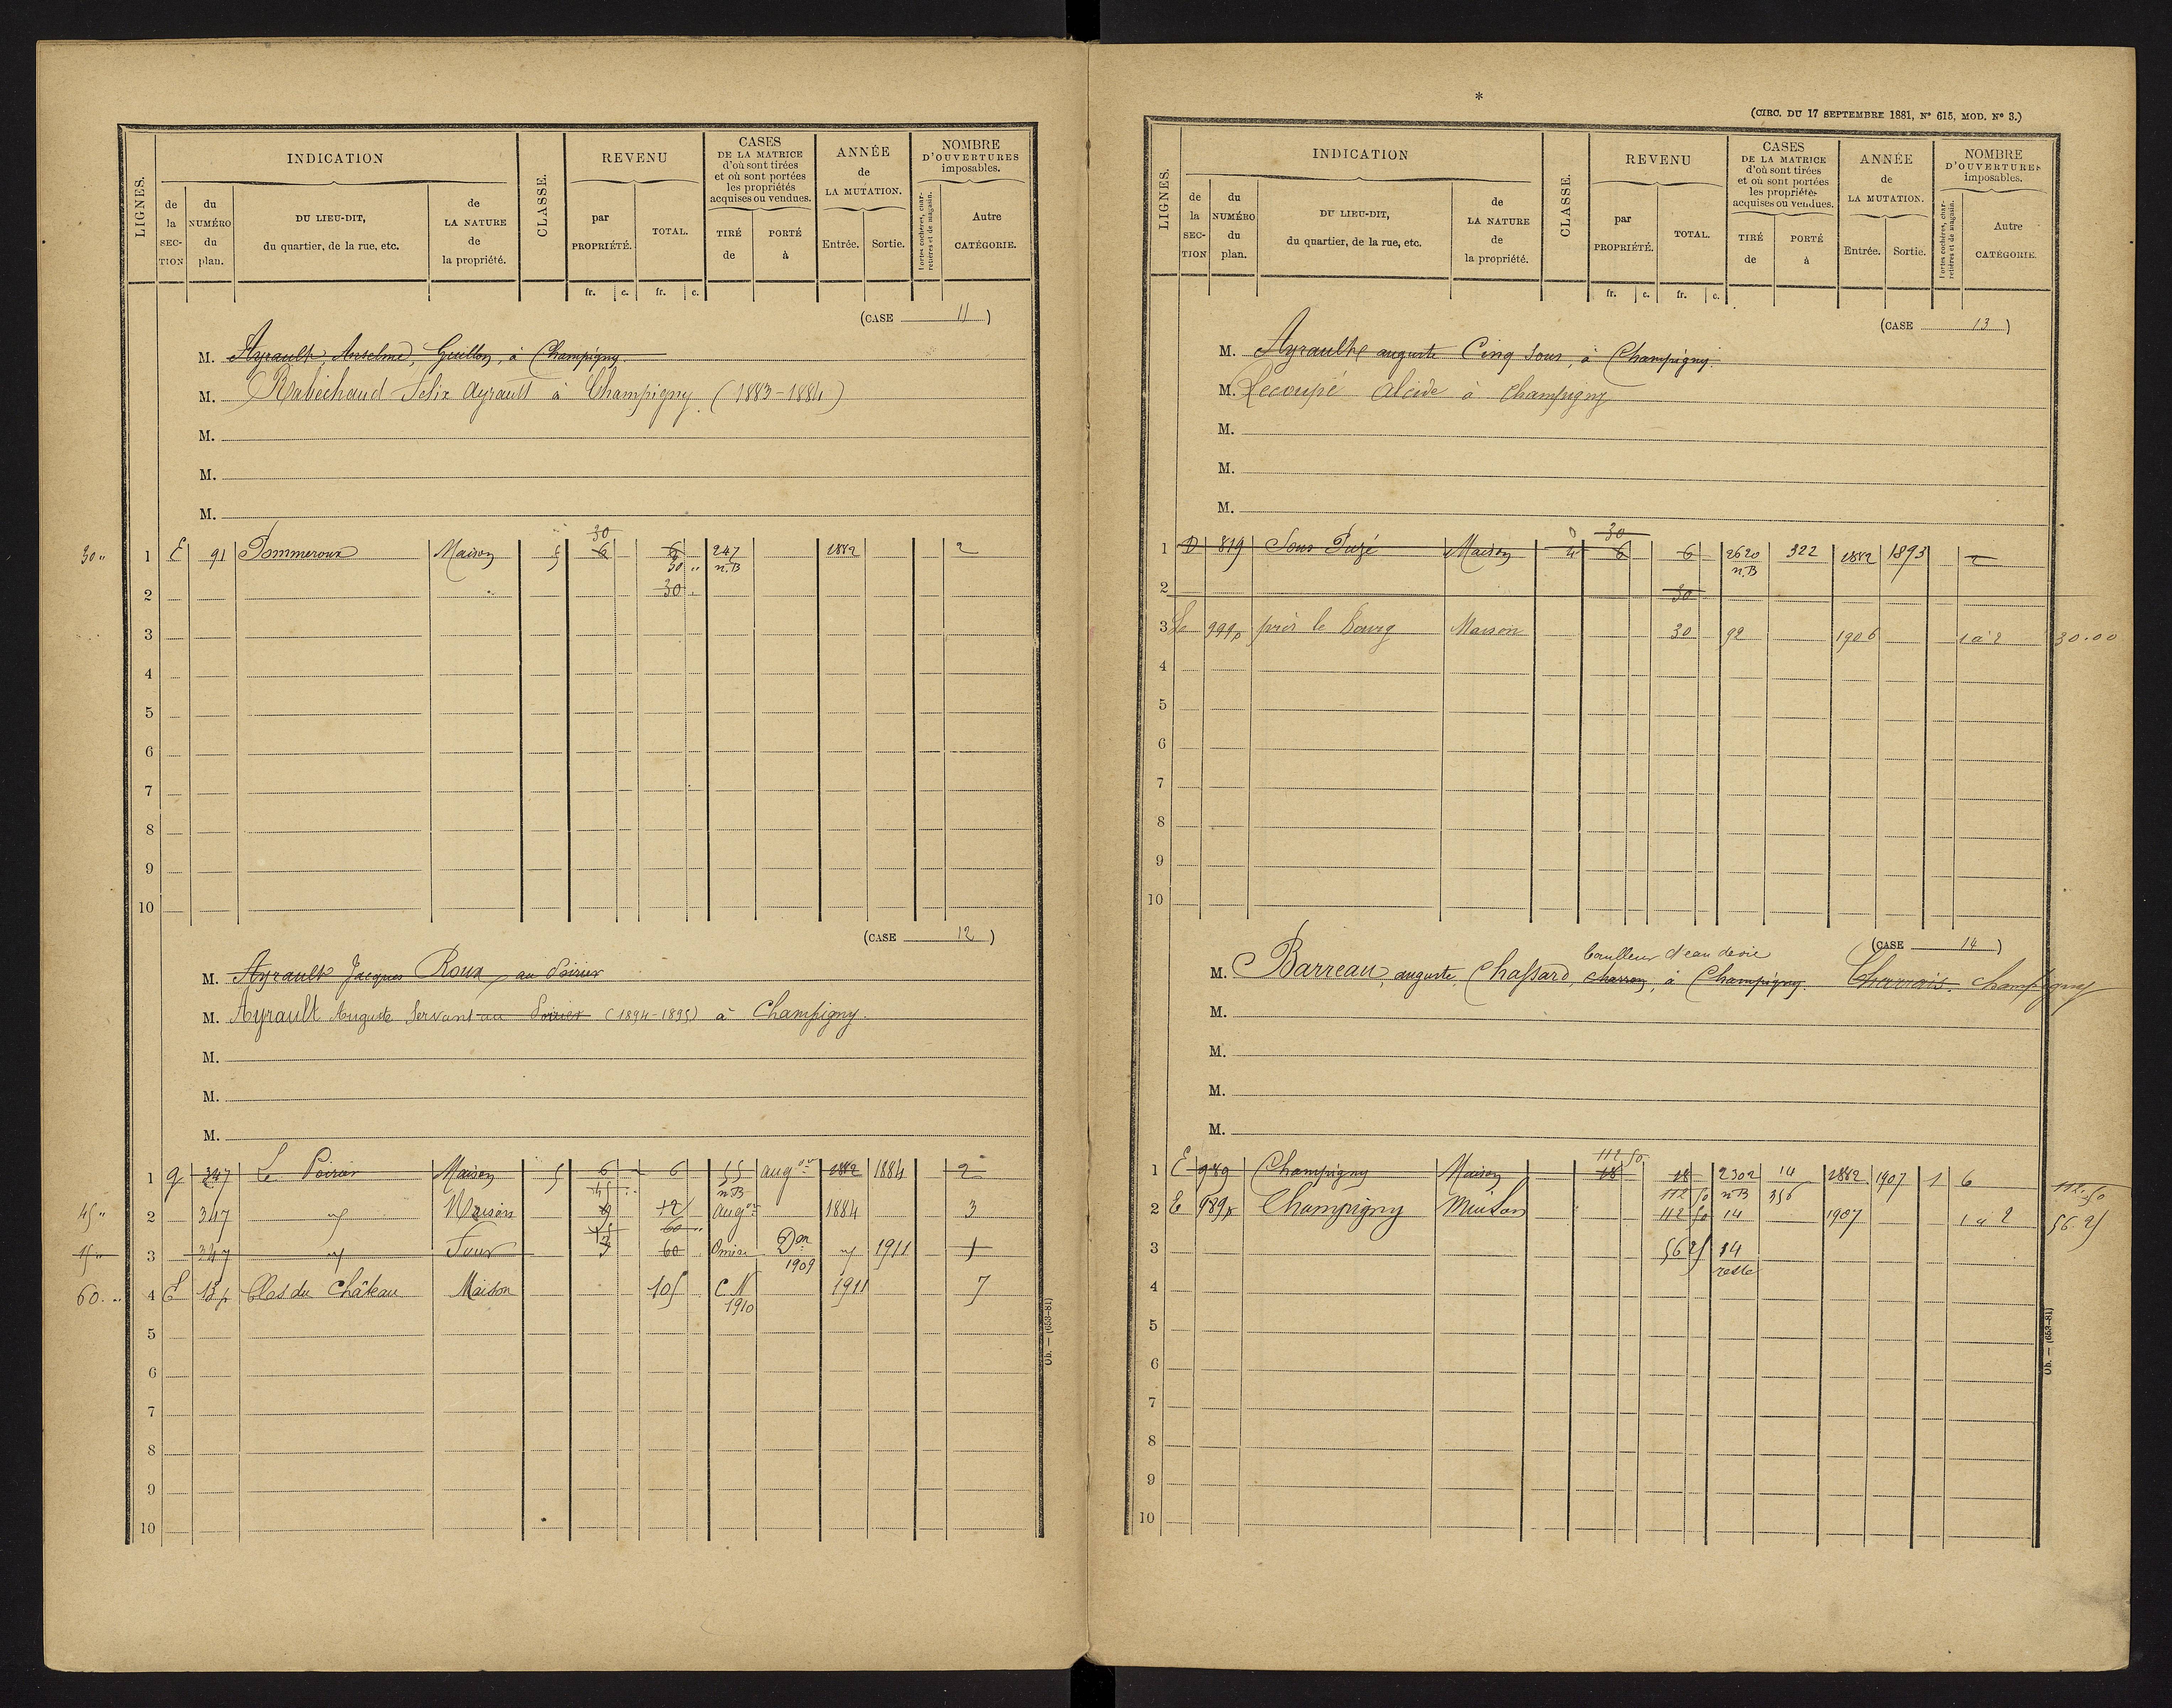 LIGNES.
INDICATION
de la SECTION
du NUMÉRO du plan.
DU LIEU-DIT, du quartier, de la rue, etc.
de LA NATURE de la propriété.
CLASSE.
REVENU
par PROPRIÉTÉ.
TOTAL.
CASES DE LA MATRICE d'où sont tirées et où sont portées les propriétés acquises ou vendues.
TIRÉ de
PORTÉ à
ANNÉE de LA MUTATION.
Entrée. Sortie.
NOMBRE D'OUVERTURES imposables.
Portes cochères, charretières et de magasin.
Autre CATÉGORIE.
fr. c. fr. c.
(CASE 11)
M. Ayrault, Anselme, Guillon, à Champigny
M. Rabéchaud Felix Ayrault à Champigny (1883-1884)
M.
M.
M.
30
30 " 1 E 91 Pommeroux Maison 5 6 6 247 1882 2
30 " n.B
2 30
3
4
5
6
7
8
9
10
(CASE 12)
M. Ayrault Jacques Roux, au Poirier
M. Ayrault Auguste Servant au Poirier (1894-1895) à Champigny.
M.
M.
M.
1 G 347 Le Poirier Maison 5 6 6 55 aug on 1882 1884 2
45 n.B
45 " 2 347 Maison 9 12 aug on 1884 3
15 60
15 " 3 347 Four 3 60 Omise Don 1909 1911 1
60 " 4 E 13p Clos du Château Maison 105 C.N 1910 1911 7
5
6
7
8
9
10
Ob. — (653-81)
*
(CIRC. DU 17 SEPTEMBRE 1881, N° 615, MOD. N° 3.)
LIGNES.
INDICATION
de la SECTION
du NUMÉRO du plan.
DU LIEU-DIT, du quartier, de la rue, etc.
de LA NATURE de la propriété.
CLASSE.
REVENU
par PROPRIÉTÉ.
TOTAL.
CASES DE LA MATRICE d'où sont tirées et où sont portées les propriétés acquises ou vendues.
TIRÉ de
PORTÉ à
ANNÉE de LA MUTATION.
Entrée. Sortie.
NOMBRE D'OUVERTURES imposables.
Portes cochères, charretières et de magasin.
Autre CATÉGORIE.
fr. c. fr. c.
(CASE 13)
M. Ayrault auguste Cinq Sous, à Champigny.
M. Lecoupé Alcide à Champigny
M.
M.
M.
30
1 D 819 Sous Puzé Maison 4 6 6 2620 322 1882 1893 2
n.B
2 30
3 999p près le bourg Maison 30 92 1906 1 à 2 30.00
4
5
6
7
8
9
10
(CASE 14)
bouilleur d'eau de vie
M. Barreau, auguste, Chassard, charron, à Champigny. Champigny
M.
M.
M.
M.
112 50
1 E 989 Champigny Maison 18 18 2302 14 1882 1907 1 6
112 50 n.B 356 112.50
2 E 989p Champigny Maison 112 50 14 1907 1 à 2 56 25
3 56 25 14 reste
4
5
6
7
8
9
10
Ob. — (653-81)